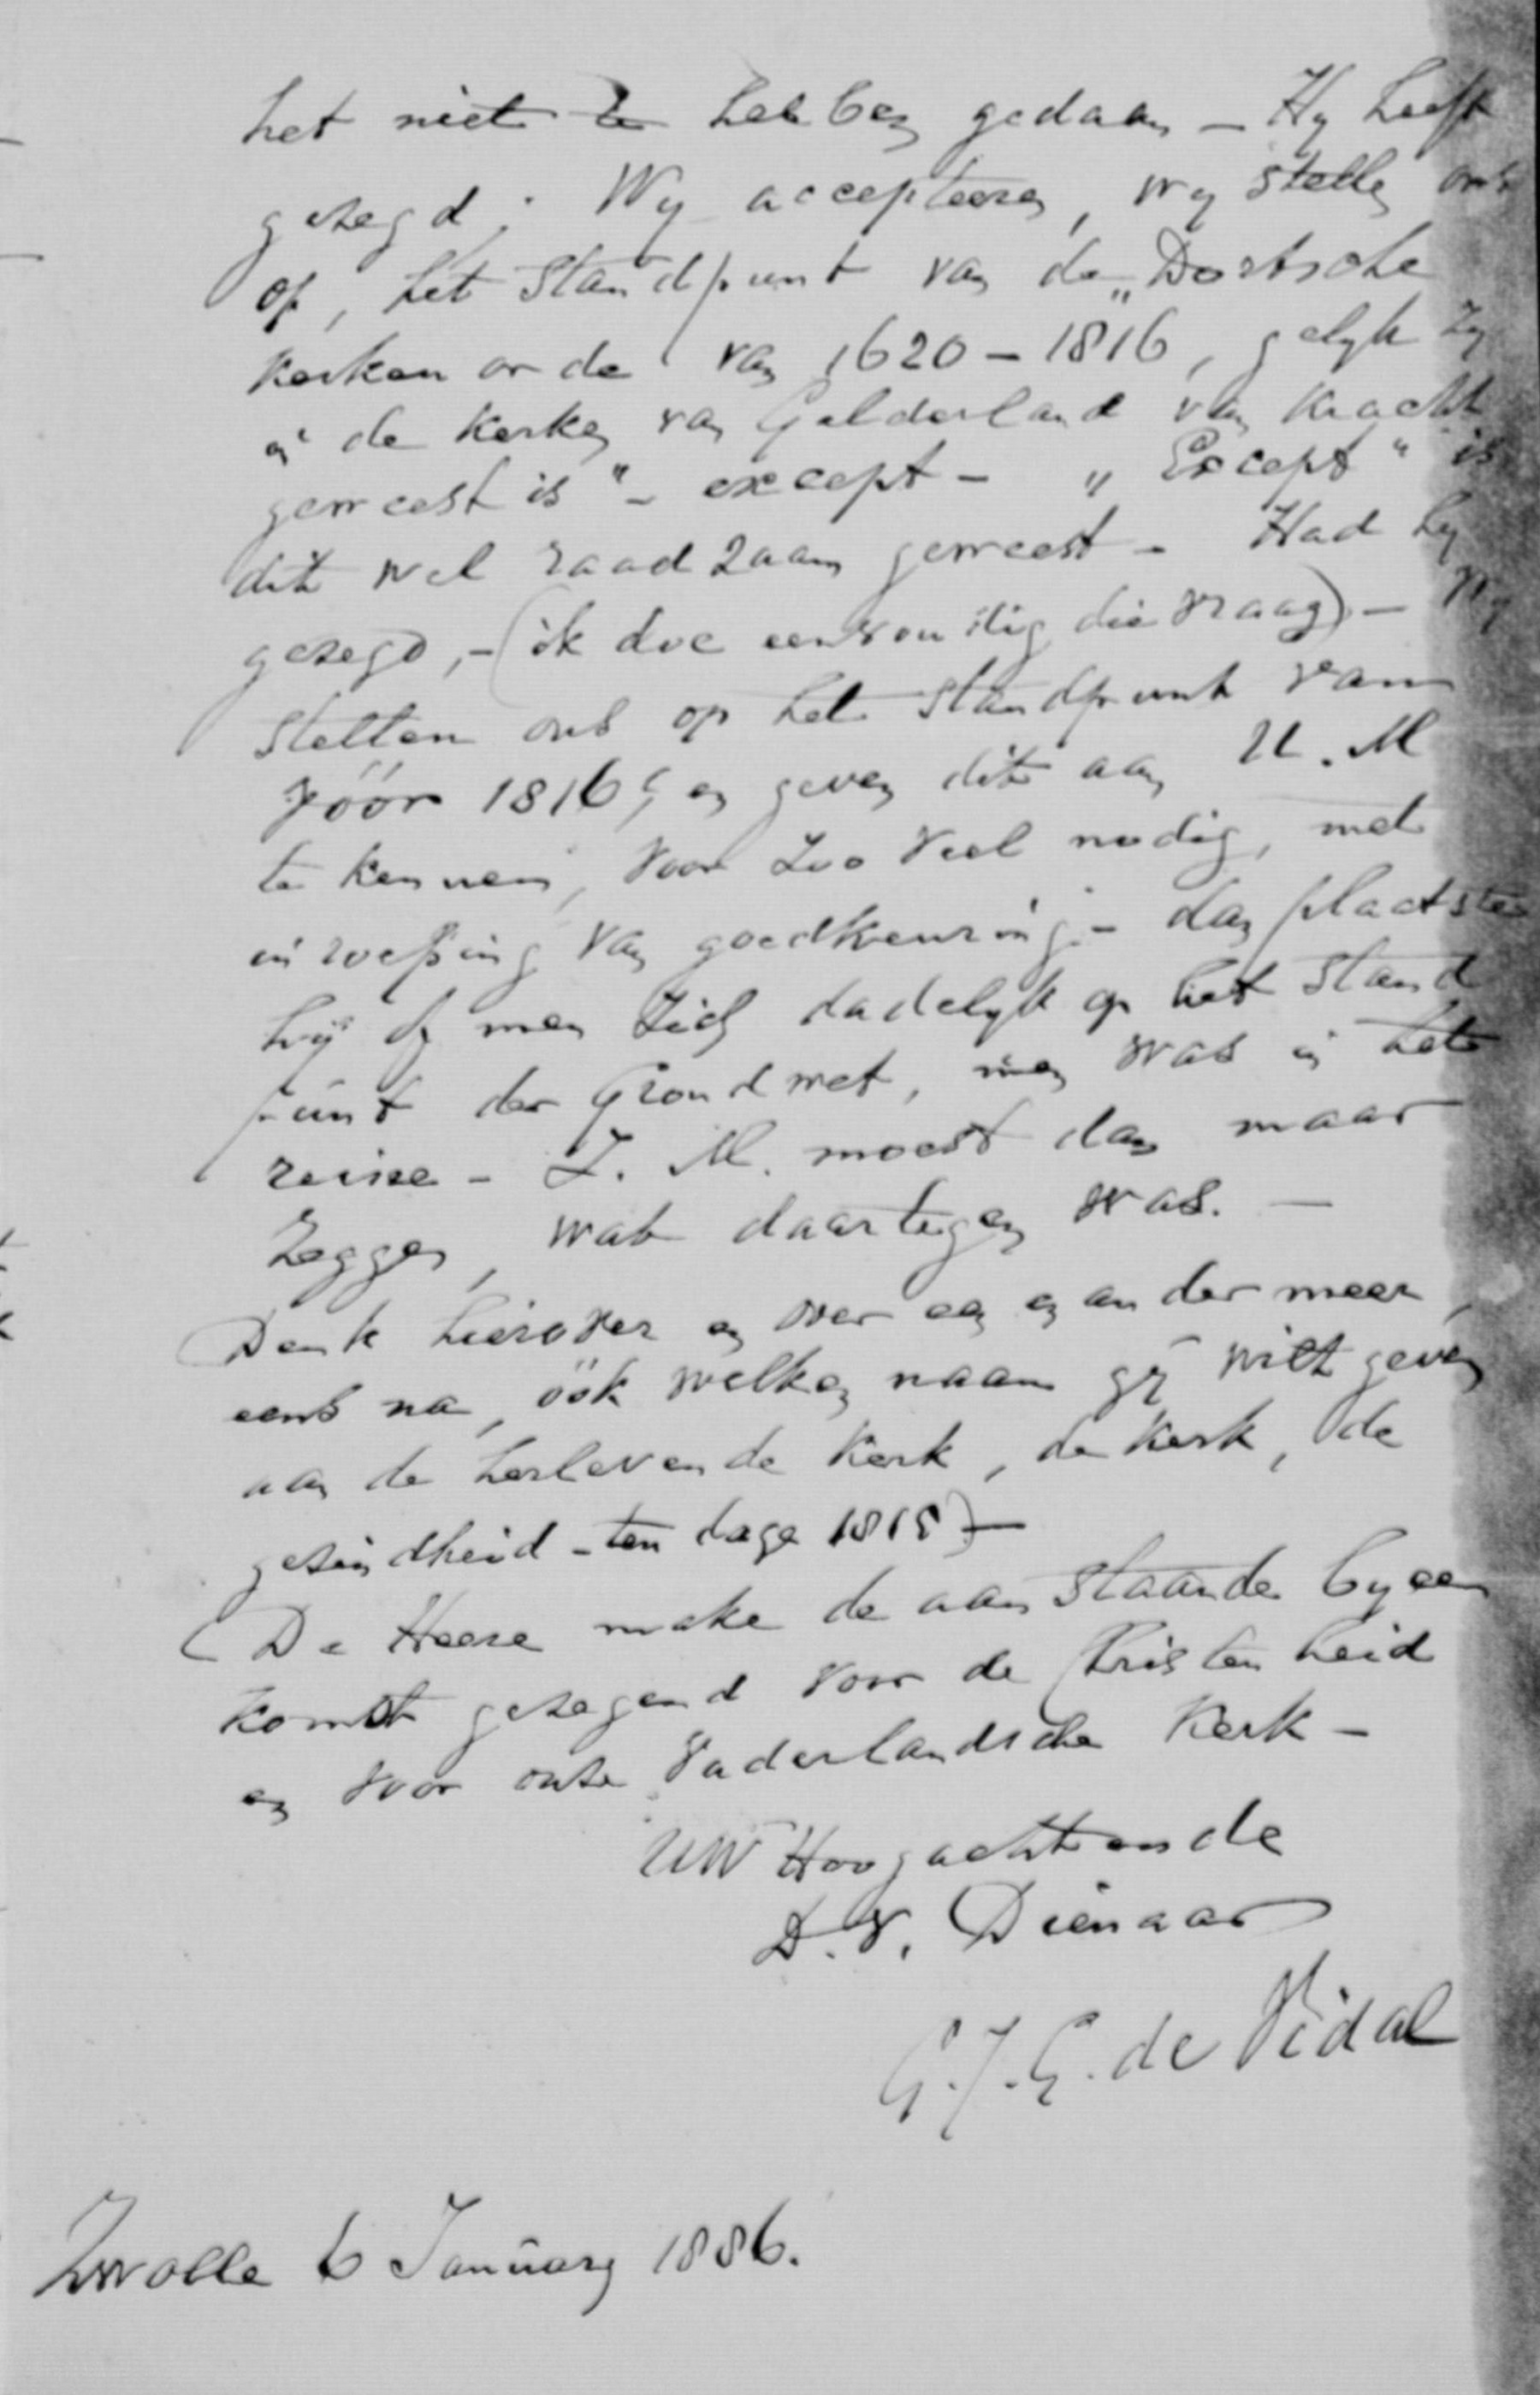 het niet te hebben gedaan – Hy heeft
gezegd: Wy accepteeren, wy stellen ons
op, het standpunt van de „Dortsche
kerken orde van 1620 – 1816, gelyk zy
in de kerken van Gelderland van kracht
geweest is" – except – „Except" is
dit wel raadzaam geweest – Had hy
gezegd, – (ik doe eenvoudig die vraag) – Wy
stellen ons op het standpunt van
vóór 1816, en geven dit aan U. M
te kennen, voor zoo veel nodig, met
inroeping van goedkeuring – dan plaatste
hij of men zich dadelyk op het stand
punt der Grondwet, men was in het
reine – Z. M. moest dan maar
zeggen, wat daartegen was. –
Denk hierover en over een en ander meer,
eens na, óók welken naam gy wilt geven
aan de herlevende kerk, de kerk, de
gezindheid – ten dage 1815) –
De Heere make de aanstaande byeen
komst gezegend voor de Christenheid
en voor onze Vaderlandsche Kerk –
UW Hoogachtende
D. V. Dienaar
G. J. G. de Vidal
Zwolle 6 January 1886.